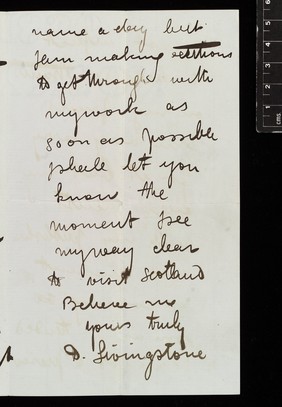 name a day but
I am making
to get through with
my work as
soon as possible
I shall let you
know the
moment I see
my way clear
to visit Scotland
Believe me
yours truly
D. Livingstone
cms